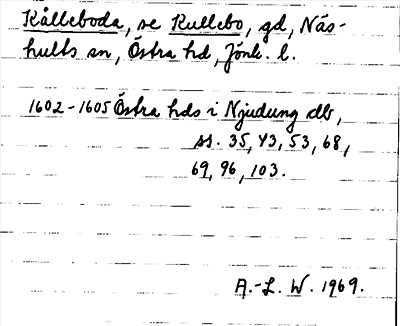 Kålleboda, se Kullebo, gd, Näs-
hults sn, Östra hd, Jönk. l.
1602-1605 Östra hds i Njudung db,
ss. 35, 43, 53, 68,
69, 96, 103.
A.-L. W. 1969.